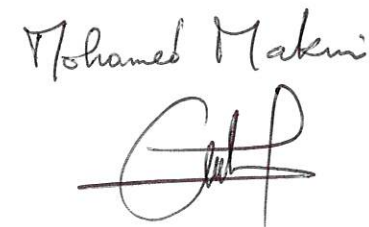 Mohamed Makni